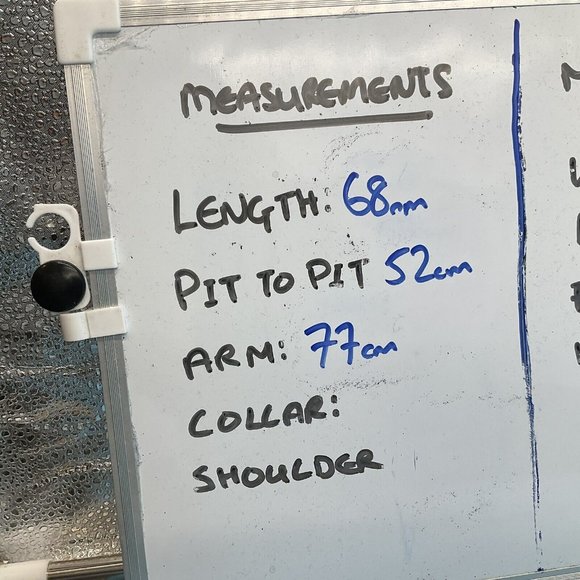 MEASUREMENTS
LENGTH: 68mm
PIT TO PIT 52cm
ARM: 77cm
COLLAR:
SHOULDER